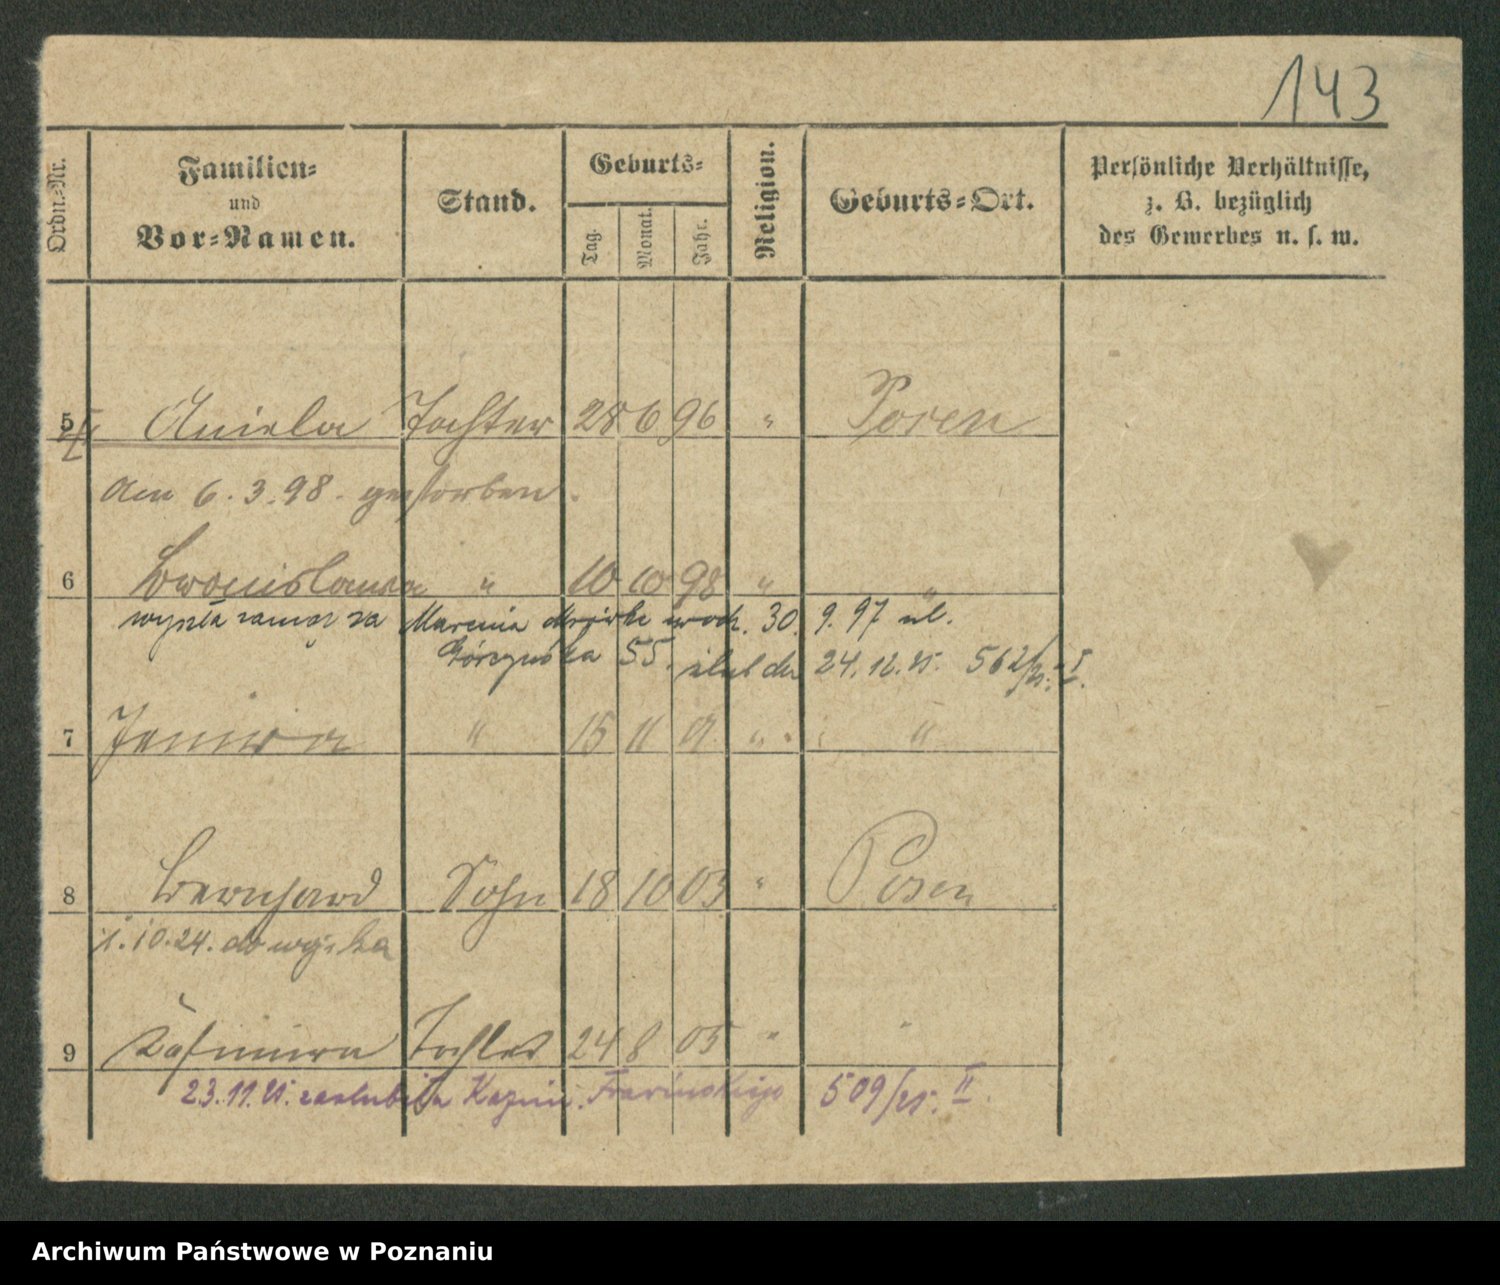 143
Ordn.-Nr.
Familien-
und
Vor-Namen.
Stand.
Geburts-
Tag.
Monat.
Jahr.
Religion.
Geburts-Ort.
Persönliche Verhältnisse,
z. B. bezüglich
des Gewerbes u. s. w.
5 Aniela Tochter 28 6 96 " Posen
Am 6.3.98. gestorben.
6 Bronislawa " 10 10 98 " "
wyszła zamąż za 30. 9. 97 ul.
55. ślub dn 24. 12. 25. 562/25. I.
7 Janina " 15 11 01 " "
8 Bernhard Sohn 18 10 03 " Posen
1.10.24. do wojska
9 Kasimira Tochter 24 8 05 " "
23.11.25. zaślubiła Kazim. 509/25. II.
Archiwum Państwowe w Poznaniu